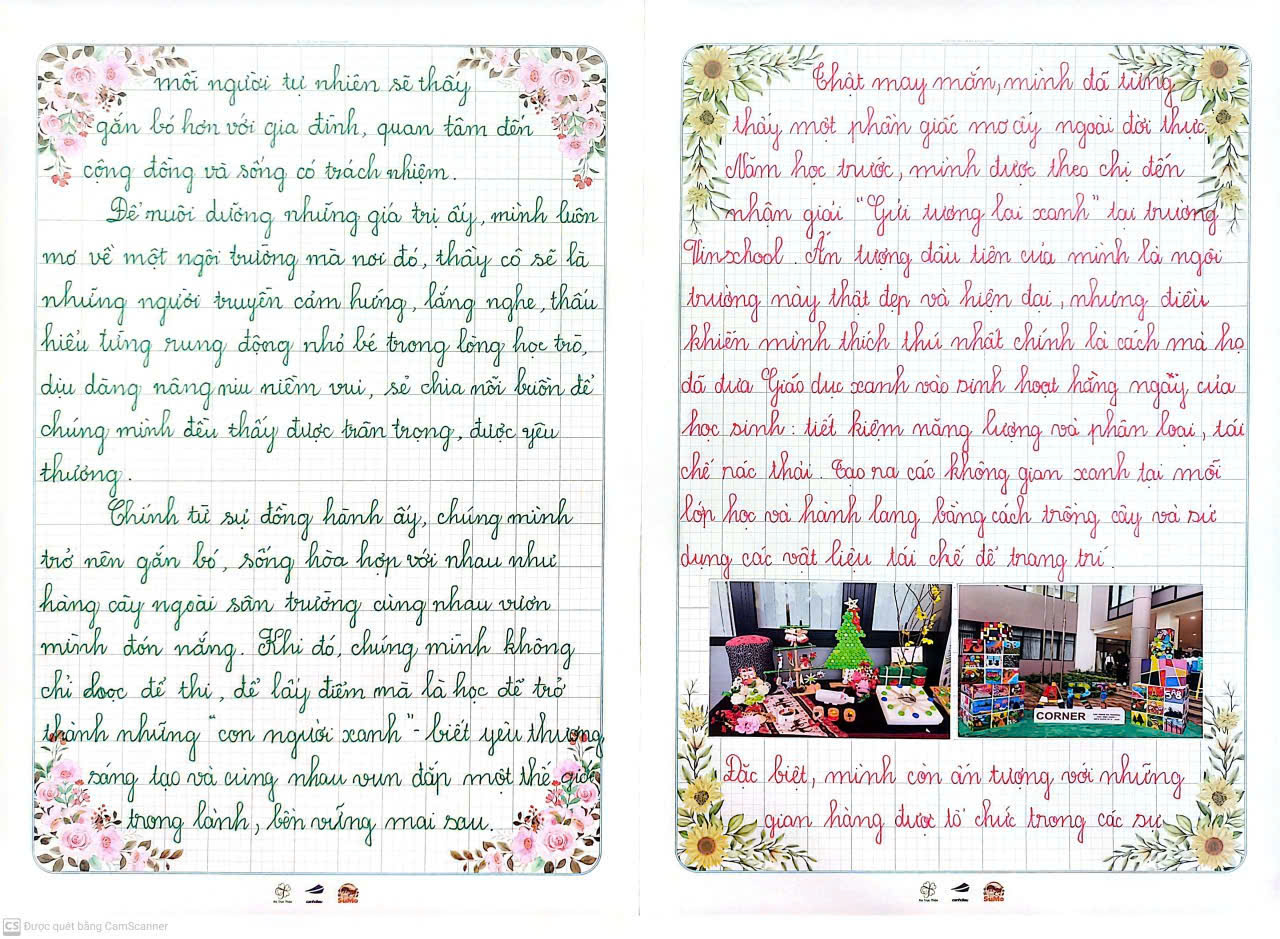 mỗi người tự nhiên sẽ thấy
gắn bó hơn với gia đình, quan tâm đến
cộng đồng và sống có trách nhiệm.
Để nuôi dưỡng những giá trị ấy, mình luôn
mơ về một ngôi trường mà nơi đó, thầy cô sẽ là
những người truyền cảm hứng, lắng nghe, thấu
hiểu từng rung động nhỏ bé trong lòng học trò,
dịu dàng nâng niu niềm vui, sẻ chia nỗi buồn để
chúng mình đều thấy được trân trọng, được yêu
thương.
Chính từ sự đồng hành ấy, chúng mình
trở nên gắn bó, sống hòa hợp với nhau như
hàng cây ngoài sân trường cùng nhau vươn
mình đón nắng. Khi đó, chúng mình không
chỉ học để thi, để lấy điểm mà là học để trở
thành những "con người xanh" - biết yêu thương
sáng tạo và cùng nhau vun đắp một thế giới
trong lành, bền vững mai sau.
Thật may mắn, mình đã từng
thấy một phần giấc mơ ấy ngoài đời thực
Năm học trước, mình được theo chị đến
nhận giải "Gửi tương lai xanh" tại trường
Vinschool. Ấn tượng đầu tiên của mình là ngôi
trường này thật đẹp và hiện đại, nhưng điều
khiến mình thích thú nhất chính là cách mà họ
đã đưa Giáo dục xanh vào sinh hoạt hằng ngày của
học sinh: tiết kiệm năng lượng và phân loại, tái
chế rác thải. Tạo ra các không gian xanh tại mỗi
lớp học và hành lang bằng cách trồng cây và sử
dụng các vật liệu tái chế để trang trí.
CORNER
5A8
Đặc biệt, mình còn ấn tượng với những
gian hàng được tổ chức trong các sự
SuMo
SuMo
CS Được quét bằng CamScanner